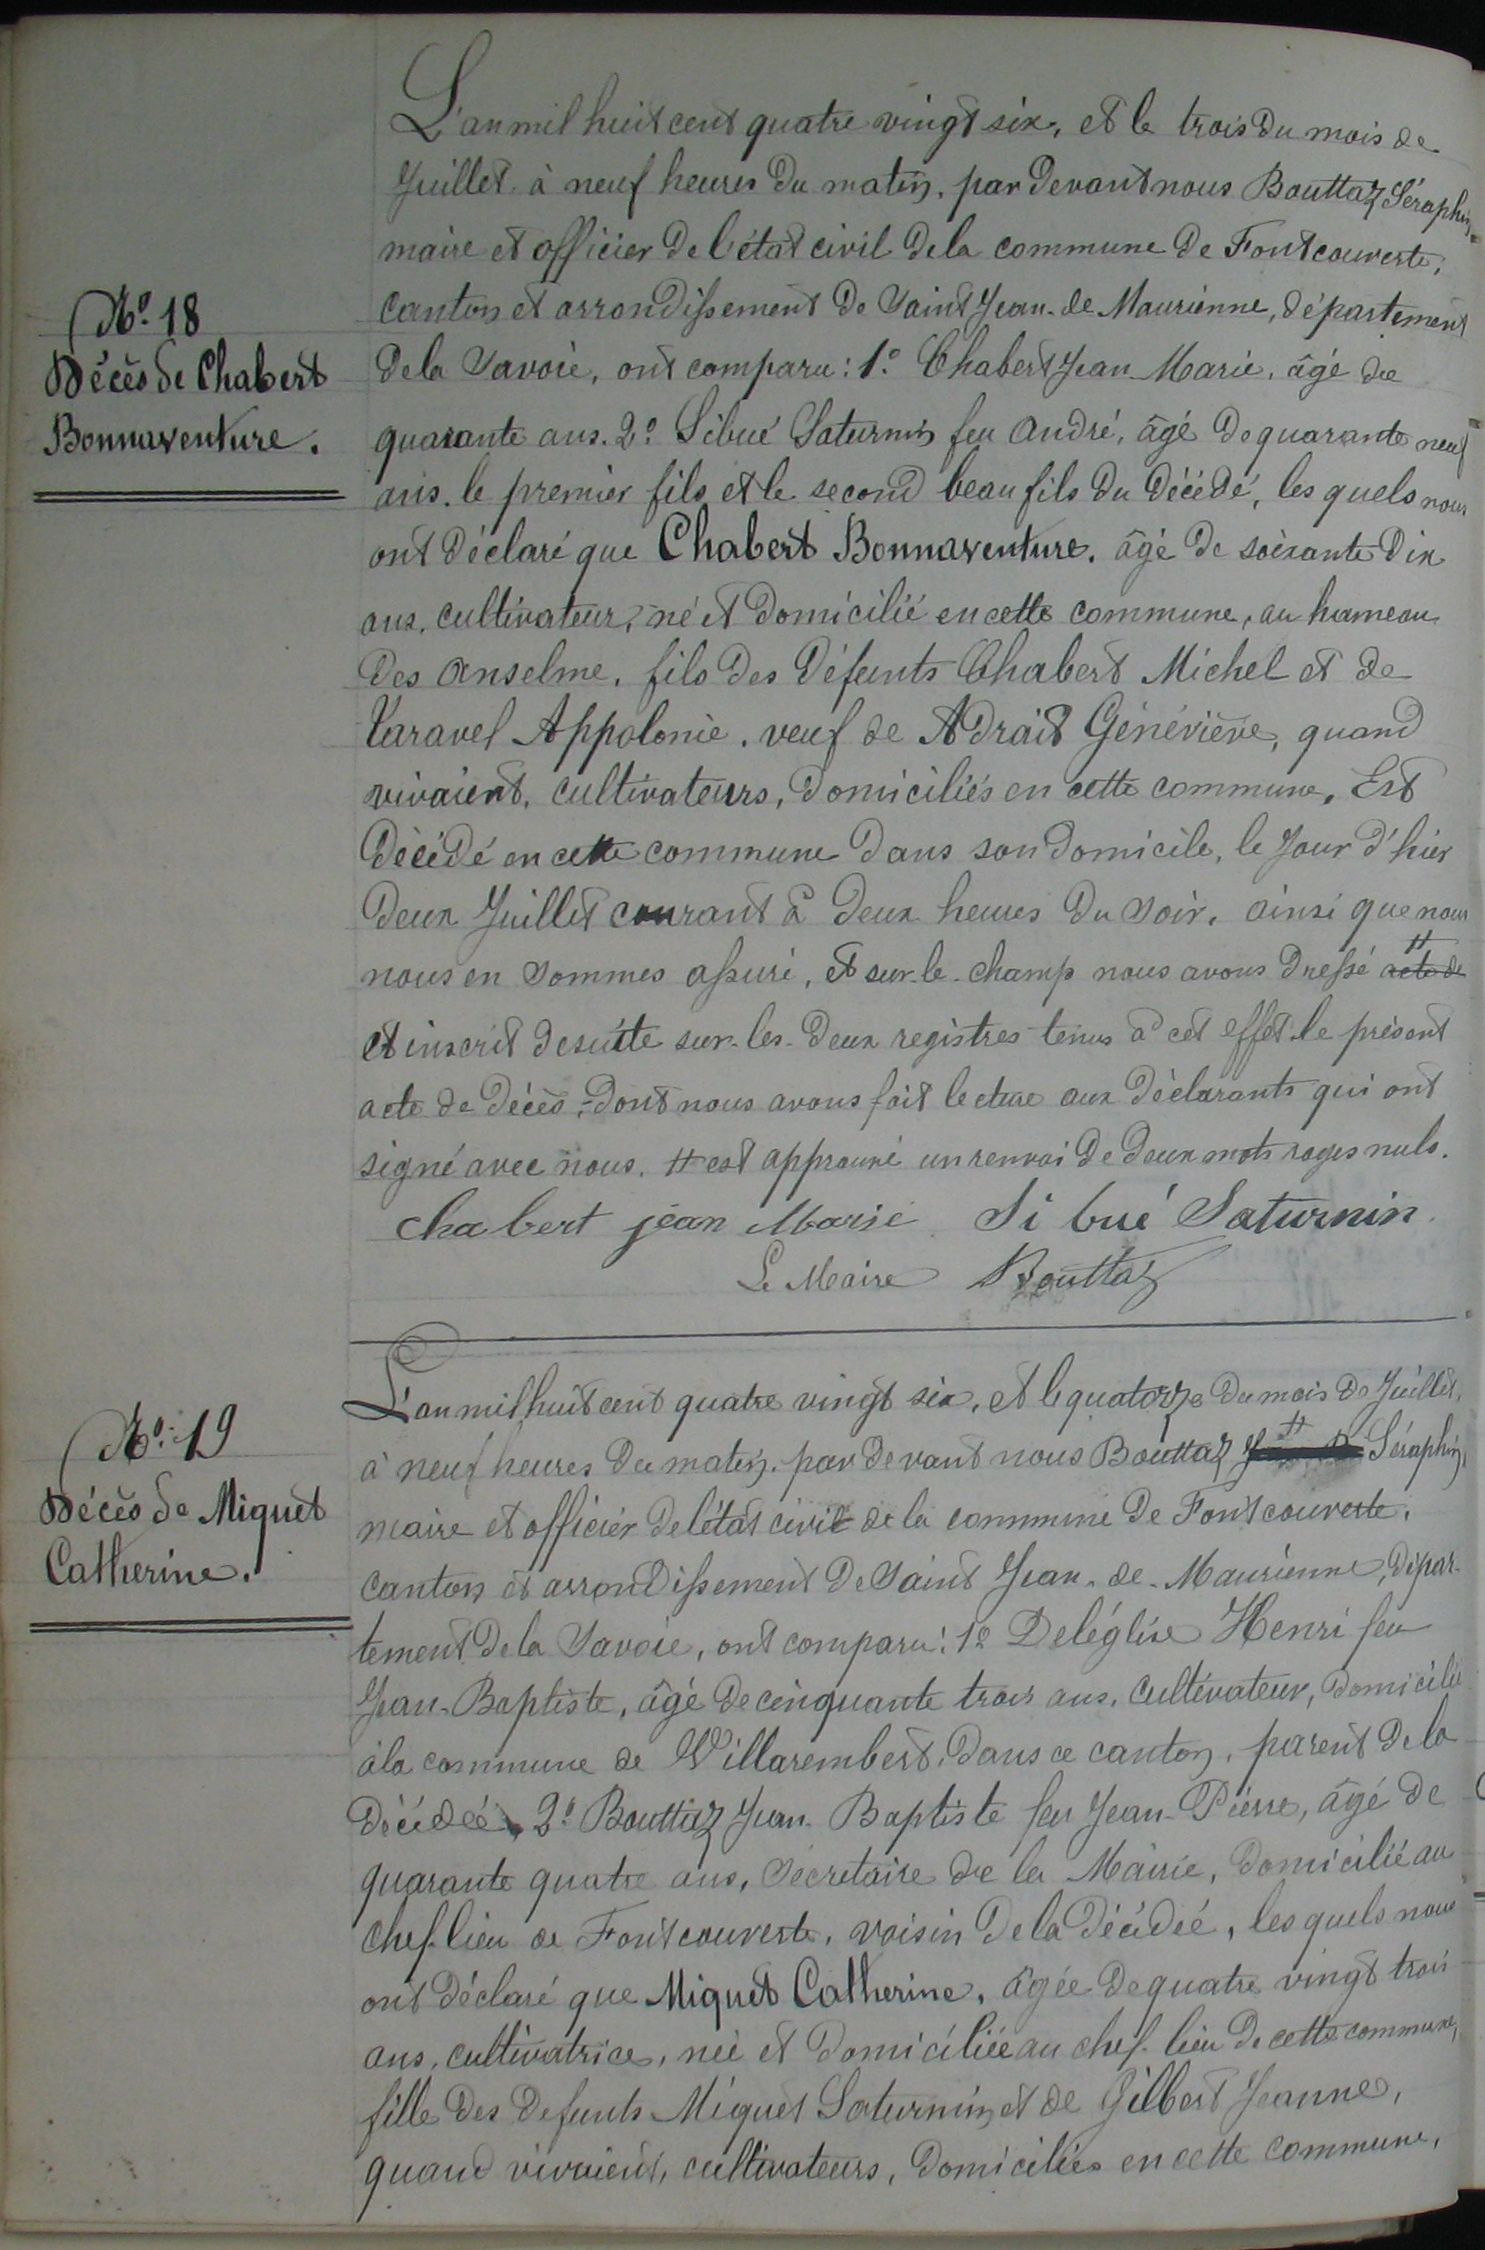 L'an mil huit cent quatre vingt six, et le trois du mois de
Juillet à neuf heures du matin, par devant nous Bouttaz Séraphin,
maire et officier de l'état civil de la commune de Fontcouverte,
canton et arrondissement de Saint Jean-de-Maurienne, département
N° 18
Décès de Chabert
Bonnaventure.
de la Savoie, ont comparu: 1° Chabert Jean Marie, âgé de
quarante ans. 2° Sibué Saturnin feu André, âgé de quarante neuf
ans. le premier fils et le second beau fils du décédé, les quels nous
ont déclaré que Chabert Bonnaventure, âgé de soixante dix
ans, cultivateur, né et domicilié en cette commune, au hameau
des Anselme, fils des défunts Chabert Michel et de
Varavel Appolonie, veuf de Adrait Généviève, quand
vivaient, cultivateurs, domiciliés en cette commune, Est
décédé en cette commune dans son domicile, le jour d'hier
deux Juillet courant à deux heures du soir, ainsi que nous
nous en sommes assuré, et sur-le-champ nous avons dressé acte de
et inscrit desuite sur-les-deux registres tenus à cet effet le présent
acte de décès, dont nous avons fait lecture aux déclarants qui ont
signé avec nous. # est approuvé un renvoi de deux mots rayés nuls.
chabert jean Marie Si bué Saturnin
Le Maire Bouttaz
L'an mil huit cent quatre vingt six, et le quatorze du mois de Juillet,
N° 19
Décès de Miquet
Catherine.
à neuf heures du matin, par devant nous Bouttaz # Séraphin,
maire et officier de l'état civil de la commune de Fontcouverte,
canton et arrondissement de Saint Jean-de-Maurienne, dépar-
tement de la Savoie, ont comparu: 1° Deléglise Henri feu
Jean-Baptiste, âgé de cinquante trois ans, cultivateur, domicilié
à la commune de Villarembert, dans ce canton, parent de la
décédée, 2° Bouttaz Jean-Baptiste feu Jean-Pierre, âgé de
quarante quatre ans, Secretaire de la Mairie, domicilié au
chef-lieu de Fontcouverte, voisin de la décédée, les quels nous
ont déclaré que Miquet Catherine, âgée de quatre vingt trois
ans, cultivatrice, née et domiciliée au chef-lieu de cette commune,
fille des defunts Miquet Saturnin, et de Gilbert Jeanne,
quand vivaient, cultivateurs, domiciliés en cette commune,